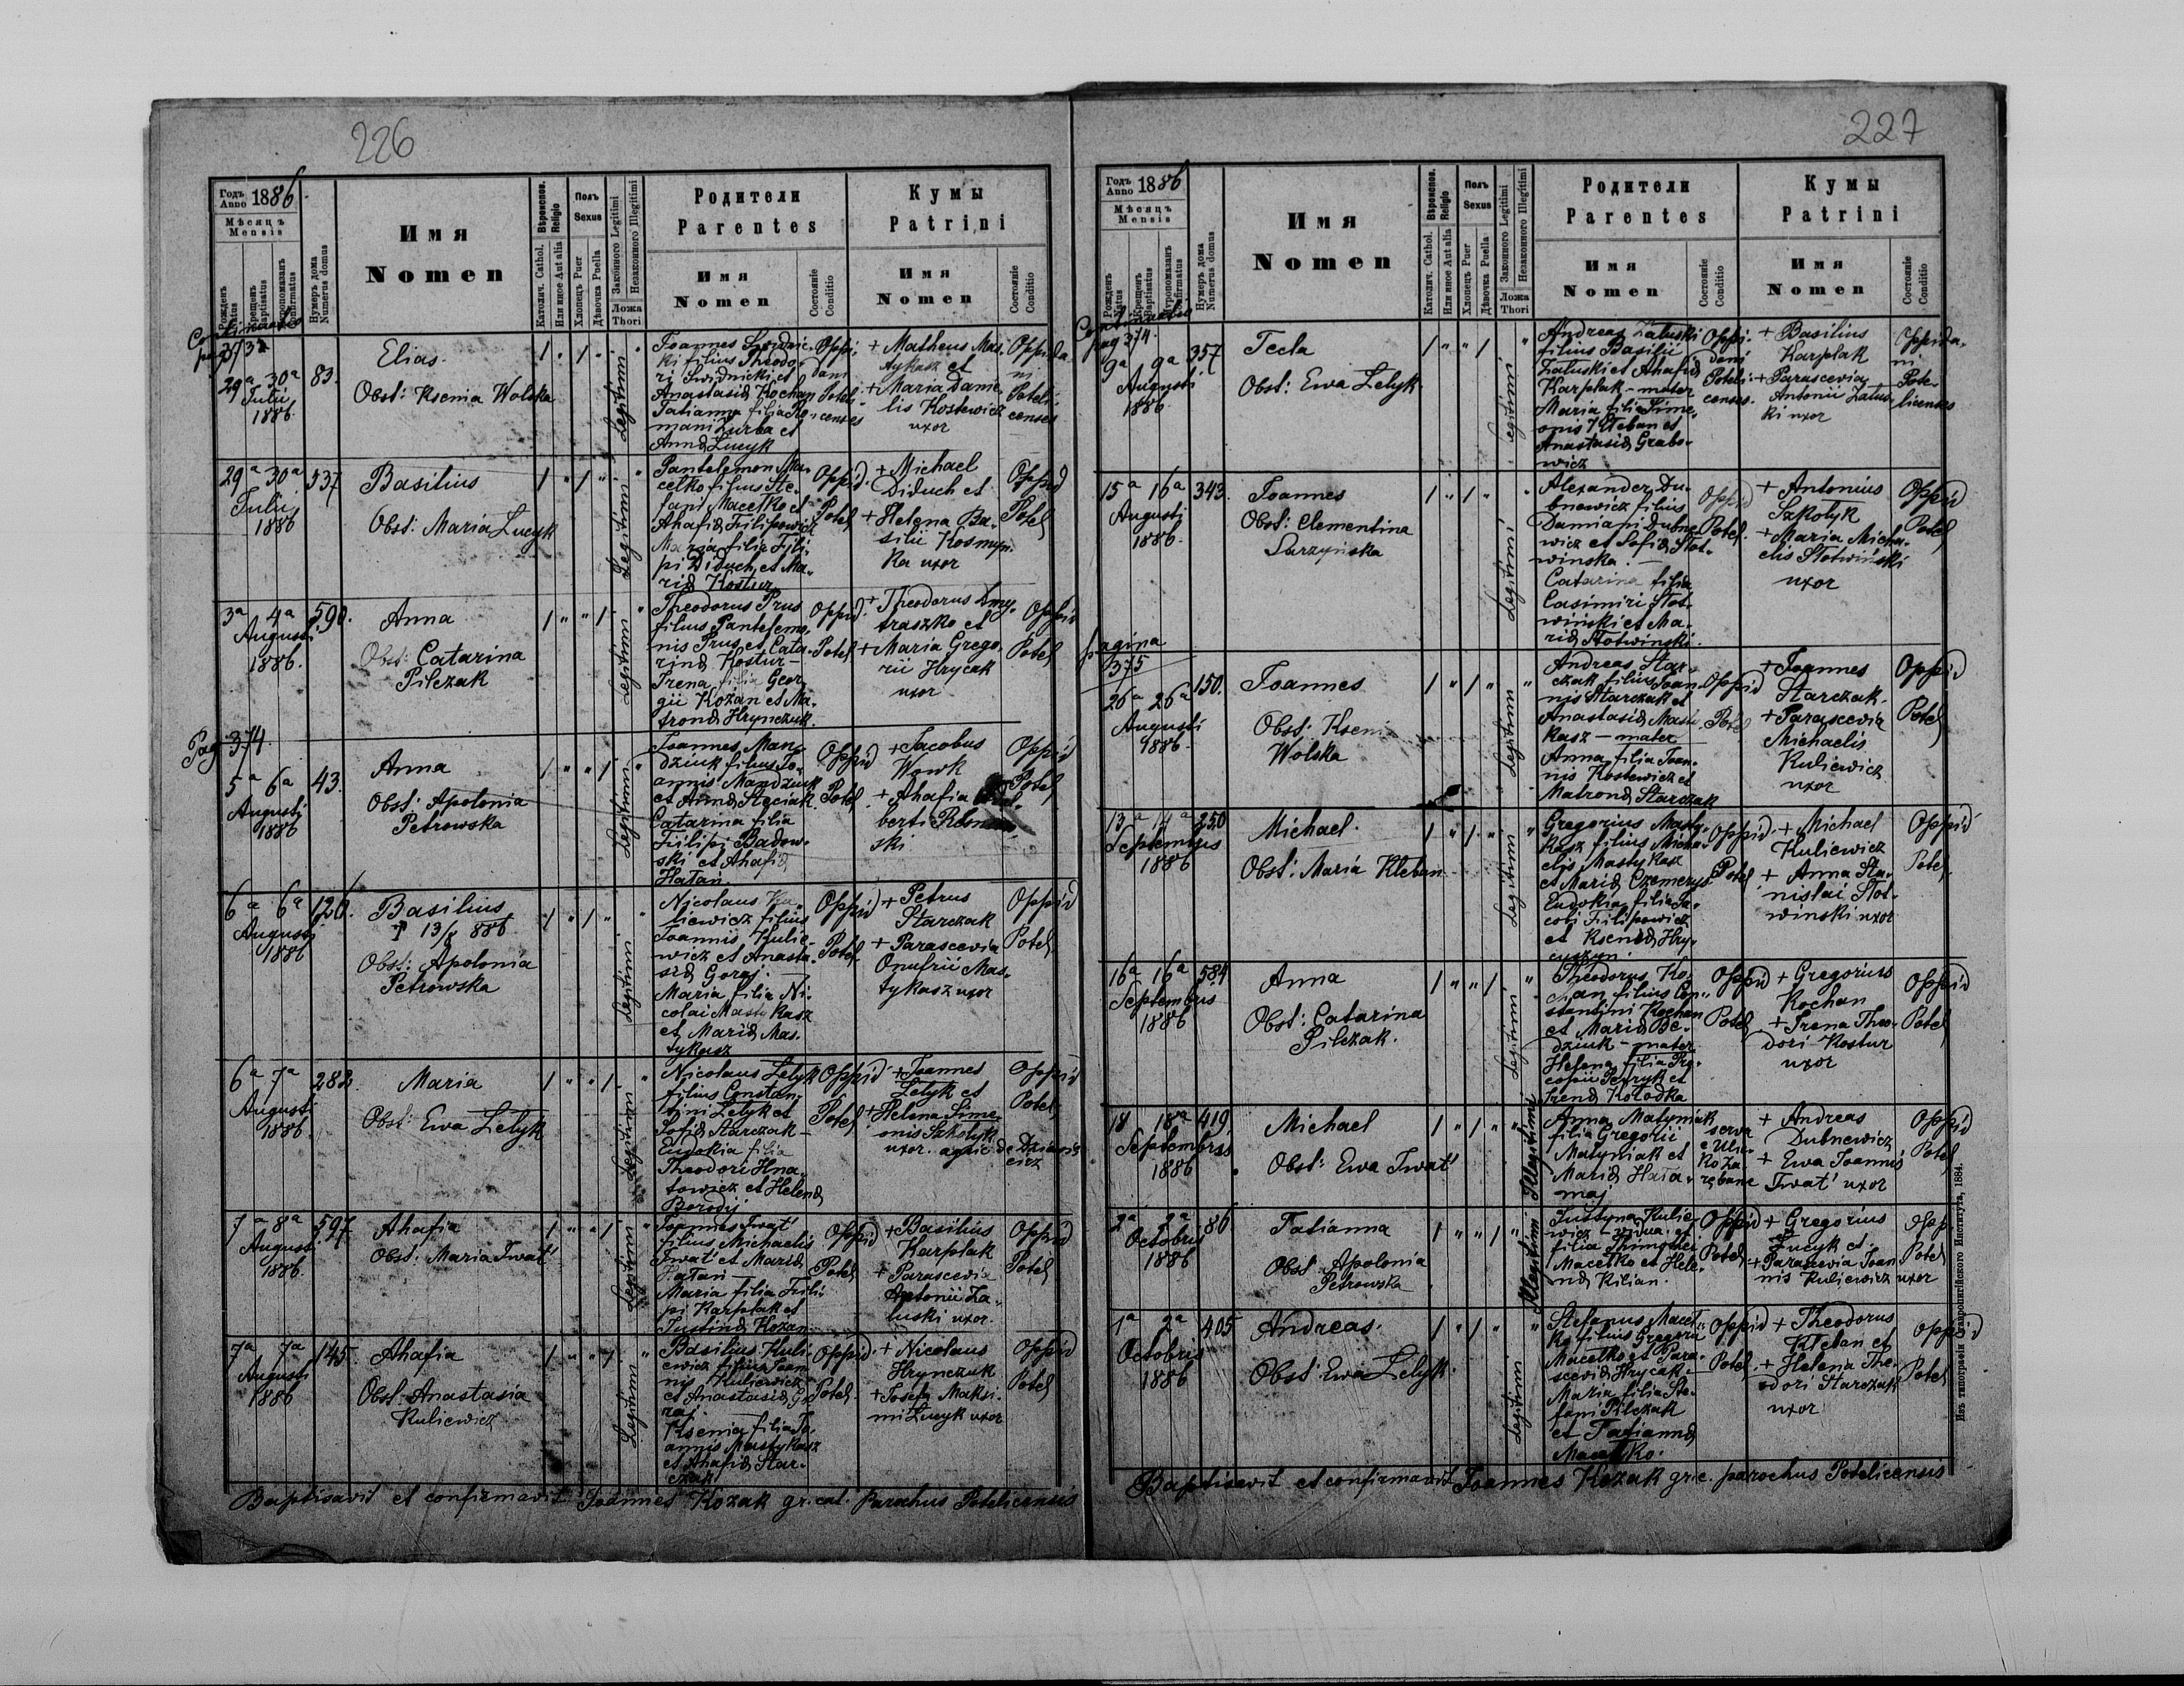 226
Годъ Anno 1886.
Мѣсяцъ
Mensis
Рожденъ Natus
Крещенъ Baptisatus
Мѵропомазанъ Confirmatus
Нумеръ дома Numerus domus
Имя
Nomen
Вѣроисповѣд. Religio
Католич. Cathol.
Или иное Aut alia
Полъ Sexus
Хлопецъ Puer
Дѣвочка Puella
Законного Legitimi
Незаконного Illegitimi
Ложа Thori
Родители
Parentes
Имя
Nomen
Состояніе Conditio
Кумы
Patrini
Имя
Nomen
Состояніе Conditio
pag 373
29ª 30ª
Julii
1886
83.
Elias.
Obst: Ksenia Wolska
Legitimi
Joannes Swidnic-
ki filius Theodo-
ri Swidnicki et
Anastasiæ Kochan
Tatianna filia Ro-
mani Zurba et
Annæ Lucyk
Oppi-
dani
Poteli-
censes
+ Matheus Mas-
tykasz et
+ Maria Danie-
lis Kostewicz
uxor
Oppida-
ni
Poteli-
censes
29ª 30ª
Julii
1886
537
Basilius
Obst: Maria Lucyk
Legitimi
Pantelemon Ma-
cełko filius Ste-
fani Macełko et
Ahafiæ Filipowicz
Maria filia Fili-
pi Diduch et Ma-
riæ Kostur
Oppid.
Potel
+ Michael
Diduch et
+ Helena Ba-
silii Kosmyn-
ka uxor
Oppid
Potel
3ª 4ª
Augusti
1886.
590.
Anna
Obst: Catarina
Pilczak
Legitimi
Theodorus Prus
filius Pantelemo-
nis Prus et Cata-
rinæ Kostur –
Irena filia Geor-
gii Kożan et Ma-
tronæ Hrynczuk.
Oppid.
Potel
+ Theodorus Dmy-
traszko et
+ Maria Grego-
rii Hrycak
uxor
Oppid
Potel
Pag. 374.
5ª 6ª
Augusti
1886
43.
Anna
Obst: Apolonia
Petrowska
Legitimi
Joannes Man-
dziuk filius Jo-
annis Mandziuk
et Annæ Steciak.
Catarina filia
Filipi Badow-
ski et Ahafiæ
Hałan
Oppid
Potel
+ Jacobus
Wowk
+ Ahafia
berti
ski
Oppid
Potel
6ª 6ª
Augusti
1886
120.
Basilius
† 13/8 886.
Obst: Apolonia
Petrowska
Legitimi
Nicolaus Ku-
liewicz filius
Joannis Kulie-
wicz et Anasta-
siæ Goraj. –
Maria filia Ni-
colai Mastykasz
et Mariæ Mas-
tykasz
Oppid
Potel
+ Petrus
Starczak
+ Parascevia
Onufrii Mas-
tykasz uxor
Oppid
Potel
6ª 7ª
Augusti
1886
282.
Maria
Obst: Ewa Lelyk
Legitimi
Nicolaus Lelyk
filius Constan-
tini Lelyk et
Sofiæ Starczak –
Eudokia filia
Theodori Hna-
towicz et Helenæ
Borodij
Oppid
Potel
+ Joannes
Lelyk et
+ Helena Sime-
onis Szkolyk
uxor
Oppid
Potel
7ª 8ª
Augusti
1886.
597.
Ahafia
Obst: Maria Iwat'
Legitimi
Joannes Iwat'
filius Michaelis
Iwat' et Mariæ
Hatan
Maria filia Fili-
pi Karpłak et
Justinæ Kożan
Oppid
Potel
+ Basilius
Karpłak
+ Parascevia
Antonii Za-
łuski uxor.
Oppid
Potel
7ª 7ª
Augusti
1886
145.
Ahafia
Obst: Anastasia
Kuliewicz
Legitimi
Basilius Kuli-
ewicz filius Joan-
nis Kuliewicz
et Anastasiæ Go-
raj.
Ksenia filia Jo-
annis Mastykasz
et Ahafiæ Star-
czak
Oppid.
Potel.
+ Nicolaus
Hrynczuk
+ Josefa Maksi-
mi Lucyk uxor
Oppid
Potel
Baptisavit et confirmavit Joannes Kozak gr. cat. Parochus Potelicensis
227
Годъ Anno 1886
Мѣсяцъ
Mensis
Рожденъ Natus
Крещенъ Baptisatus
Мѵропомазанъ Confirmatus
Нумеръ дома Numerus domus
Имя
Nomen
Вѣроисповѣд. Religio
Католич. Cathol.
Или иное Aut alia
Полъ Sexus
Хлопецъ Puer
Дѣвочка Puella
Законного Legitimi
Незаконного Illegitimi
Ложа Thori
Родители
Parentes
Имя
Nomen
Состояніе Conditio
Кумы
Patrini
Имя
Nomen
Состояніе Conditio
pag 374.
9ª 9ª
Augusti
1886
357.
Tecla
Obst: Ewa Lelyk
Legitimi
Andreas Załuski
filius Basilii
Załuski et Ahafiæ
Karpłak – mater
Maria filia Sime-
onis Kłeban et
Anastasiæ Grabo-
wicz
Oppi-
dani
Poteli-
censes.
+ Basilius
Karpłak
+ Parascevia
Antonii Załus-
ki uxor
Oppida-
ni
Pote-
licenses
15ª 16ª
Augusti
1886.
343.
Joannes
Obst: Clementina
Surzyńska
Legitimi
Alexander Du-
bnewicz filius
Damiani Dubne-
wicz et Sofiæ Słot-
winska. –
Catarina filia
Casimiri Słot-
wiński et Ma-
riæ Słotwinski.
Oppid
Potel.
+ Antonius
Szkołyk
+ Maria Micha-
elis Słotwiński
uxor
Oppid
Potel
pagina
375
26ª 26ª
Augusti
1886.
150.
Joannes
Obst: Ksenia
Wolska
Legitimi
Andreas Star-
czak filius Joan-
nis Starczak et
Anastasiæ Masty-
kasz – mater
Anna filia Joan-
nis Kostewicz et
Matronæ Starczak
Oppid
Potel
+ Joannes
Starczak.
+ Parascevia
Michaelis
Kuliewicz
uxor
Oppid
Potel
13ª 14ª
Septembris
1886
250
Michael.
Obst: Maria Kłeban
Legitimi
Gregorius Masty-
kasz filius Micha-
elis Mastykasz
et Mariæ Czemerys
Eudokia filia Ja-
cobi Filipowicz
et Kseniæ Hry-
cyszyn.
Oppid.
Potel
+ Michael
Kuliewicz
+ Anna Sta-
nislai Słot-
winski uxor
Oppid
Potel
16ª 16ª
Septembris
1886
584
Anna
Obst: Catarina
Pilczak.
Legitimi
Theodorus Ko-
chan filius Con-
stantini Kochan
et Mariæ Be-
dziuk – mater
Helena filia Pro-
copii Petryk et
Irenæ Kołodka
Oppid
Potel
+ Gregorius
Kochan
+ Irena Theo-
dori Kostur
uxor
Oppid
Potel
18 18ª
Septembris
1886
419.
Michael
Obst: Ewa Iwat'
Illegitimi
Anna Matyniak
filia Gregorii
Matyniak et
Mariæ Hała-
maj
serva
+ Andreas
Dubnewicz
+ Ewa Joannis
Iwat' uxor
Oppid
Potel
2ª 2ª
Octobris
1886
86
Tatianna
Obst: Apolonia
Petrowska
Illegitimi
Justyna Kulie-
wicz – vidua et
filia Thimothei
Macełko et Hele-
næ Kilian.
Oppid
Potel
+ Gregorius
Lucyk et
+ Parascevia Joan-
nis Kuliewicz uxor
Opp
Potel
1ª 2ª
Octobris
1886
405
Andreas.
Obst: Ewa Lelyk.
Legitimi
Stefanus Maceł-
ko filius Gregorii
Macełko et Para-
sceviæ Hrycak –
Maria filia Ste-
fani Pilczak
et Tatiannæ
Macełko.
Oppid
Potel
+ Theodorus
Kłeban et
+ Helena The-
odori Starczak
uxor
Oppid
Potel
Baptisavit et confirmavit Joannes Kozak gr. c. parochus Potelicensis
Изъ типографіи Ставропигійского Института, 1884.